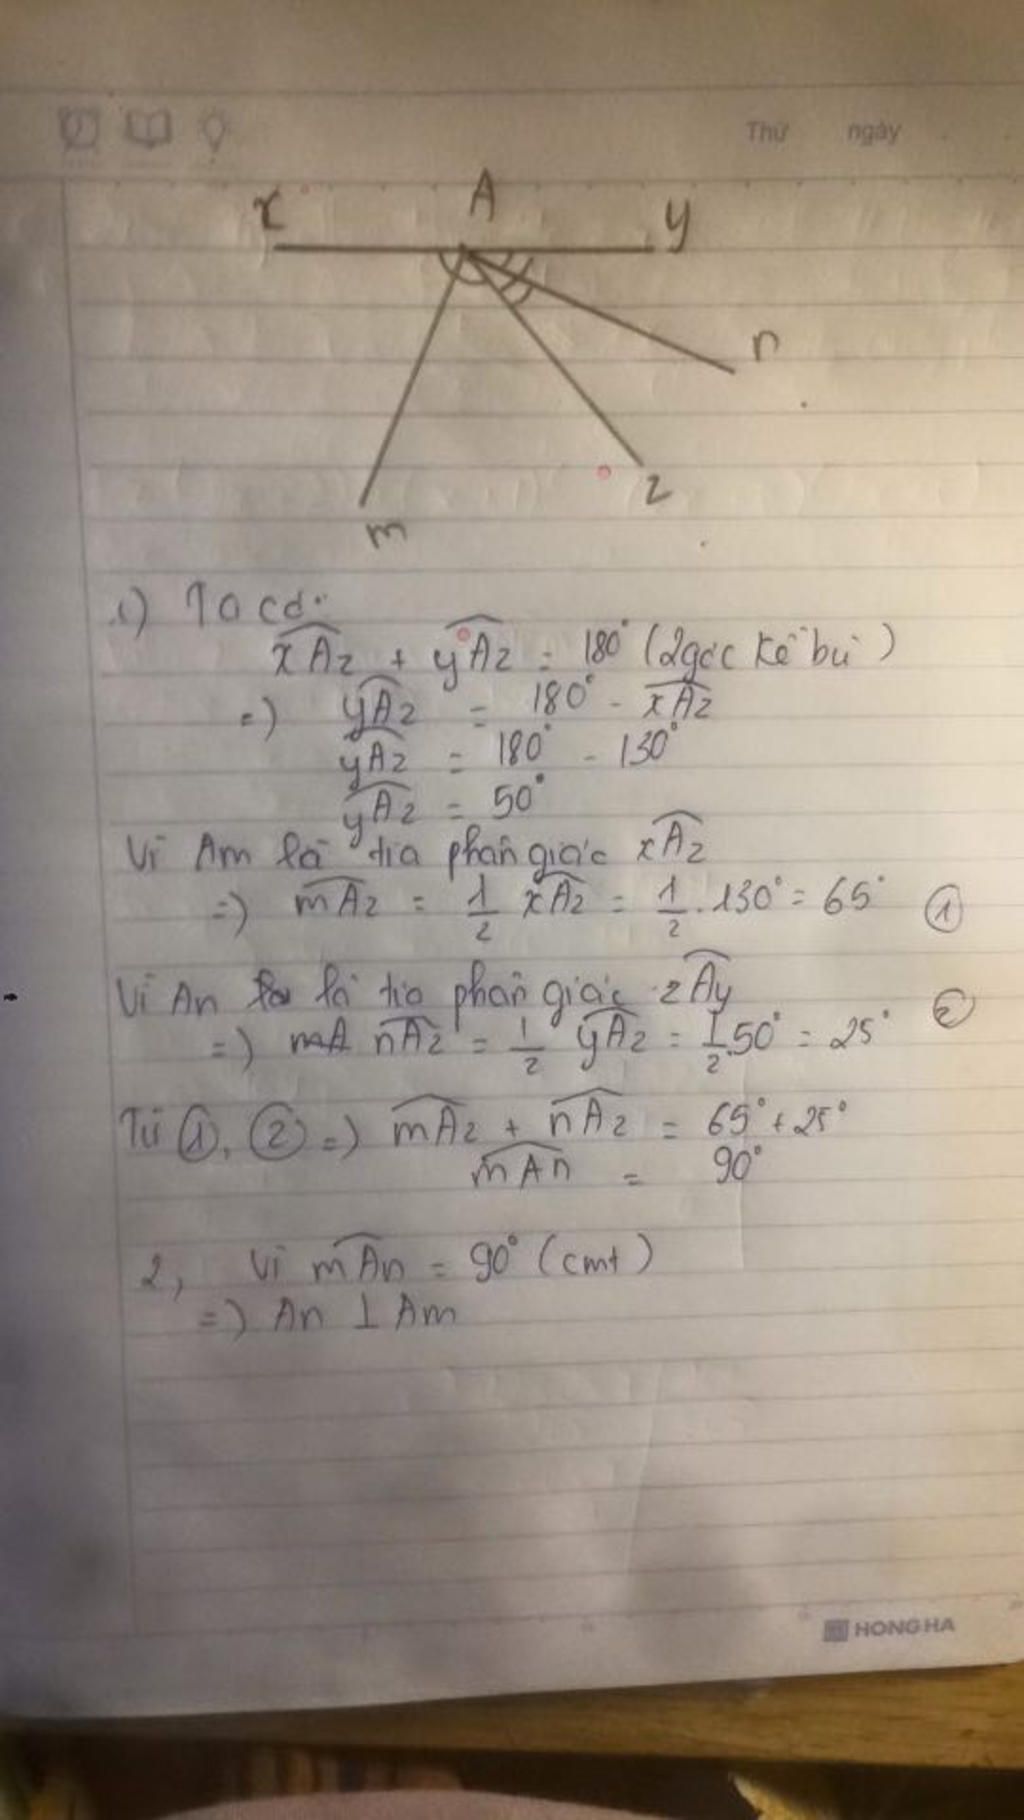 Thứ ngày
x A y
n
z
m
1) Ta có:
xAz + yAz = 180° (2 góc kề bù)
=) yAz = 180° - xAz
yAz = 180° - 130°
yAz = 50°
Vì Am là tia phân giác xAz
=) mAz = 1/2 xAz = 1/2 . 130° = 65° ①
Vì An là tia phân giác zAy ②
=) mA nAz = 1/2 yAz = 1/2 . 50° = 25°
Từ ①, ② =) mAz + nAz = 65° + 25°
mAn = 90°
2, Vì mAn = 90° (cmt)
=) An ⊥ Am
HONG HA